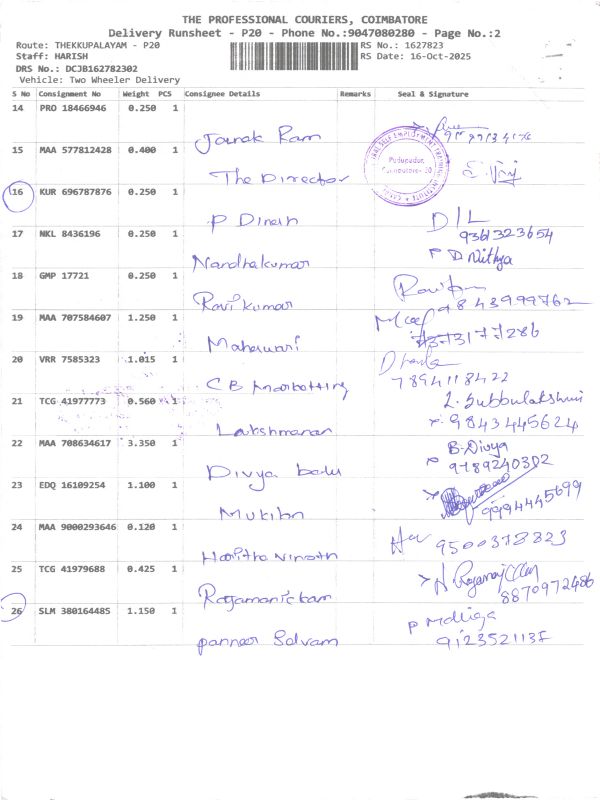 THE PROFESSIONAL COURIERS, COIMBATORE
Delivery Runsheet - P20 - Phone No.:9047080280 - Page No.:2
Route: THEKKUPALAYAM - P20 RS No.: 1627823
Staff: HARISH RS Date: 16-Oct-2025
DRS No.: DCJB162782302
Vehicle: Two Wheeler Delivery
S No Consignment No Weight PCS Consignee Details Remarks Seal & Signature
14 PRO 18466946 0.250 1
Janak Ram
15 MAA 577812428 0.400 1
The Director
16 KUR 696787876 0.250 1
P Dinesh D/L
9361323654
17 NKL 8436196 0.250 1
Nandhakumar P D Nithya
18 GMP 17721 0.250 1
Ravi kumar 9843999762
19 MAA 707584607 1.250 1
Maheswari
20 VRR 7585323 1.015 1
7894118422
21 TCG 41977773 0.560 1
Lakshmanan L. Subbulakshmi
9843445624
22 MAA 708634617 3.350 1
Divya balu B. Divya
9789240302
23 EDQ 16109254 1.100 1
9994445699
24 MAA 9000293646 0.120 1
9500378823
25 TCG 41979688 0.425 1
Rajamanickam
8870972486
26 SLM 380164485 1.150 1
panneer Selvam